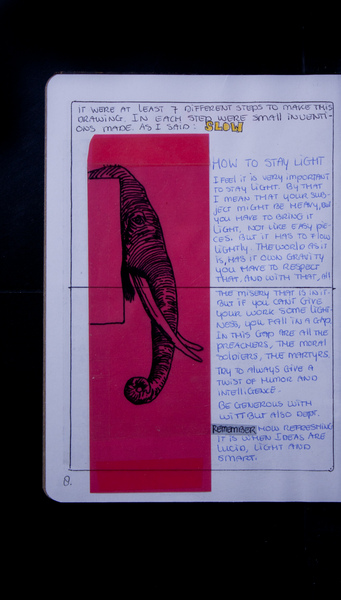 IT WERE AT LEAST 7 DIFFERENT STEPS TO MAKE THIS
DRAWING. IN EACH STEP WERE SMALL INVENTI-
ONS MADE AS I SAID: SLOW
HOW TO STAY LIGHT
I FEEL IT IS VERY IMPORTANT
TO STAY LIGHT. BY THAT
I MEAN THAT YOUR SUB-
JECT MIGHT BE HEAVY, BUT
YOU HAVE TO BRING IT
LIGHT, NOT LIKE EASY PIE-
CES. BUT IT HAS TO FLOW
LIGHTLY. THE WORLD AS IT
IS, HAS IT OWN GRAVITY
YOU HAVE TO RESPECT
THAT, AND WITH THAT, ALL
THE MISERY THAT IS IN IT.
BUT IF YOU CAN'T GIVE
YOUR WORK SOME LIGHT-
NESS, YOU FALL IN A GAP.
IN THIS GAP ARE ALL THE
PREACHERS, THE MORAL
SOLDIERS, THE MARTYRS.
TRY TO ALWAYS GIVE A
TWIST OF HUMOR AND
INTELLIGENCE.
BE GENEROUS WITH
WITT BUT ALSO
REMEMBER HOW REFRESHING
IT IS WHEN IDEAS ARE
LUCID, LIGHT AND
SMART.
8.